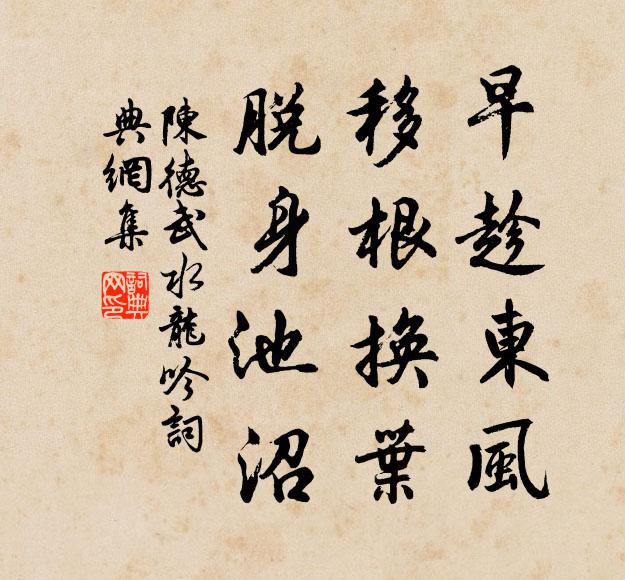 早趁東風
移根換葉
脫身池沼
陳德武水龍吟詞
典網集
詞典網印